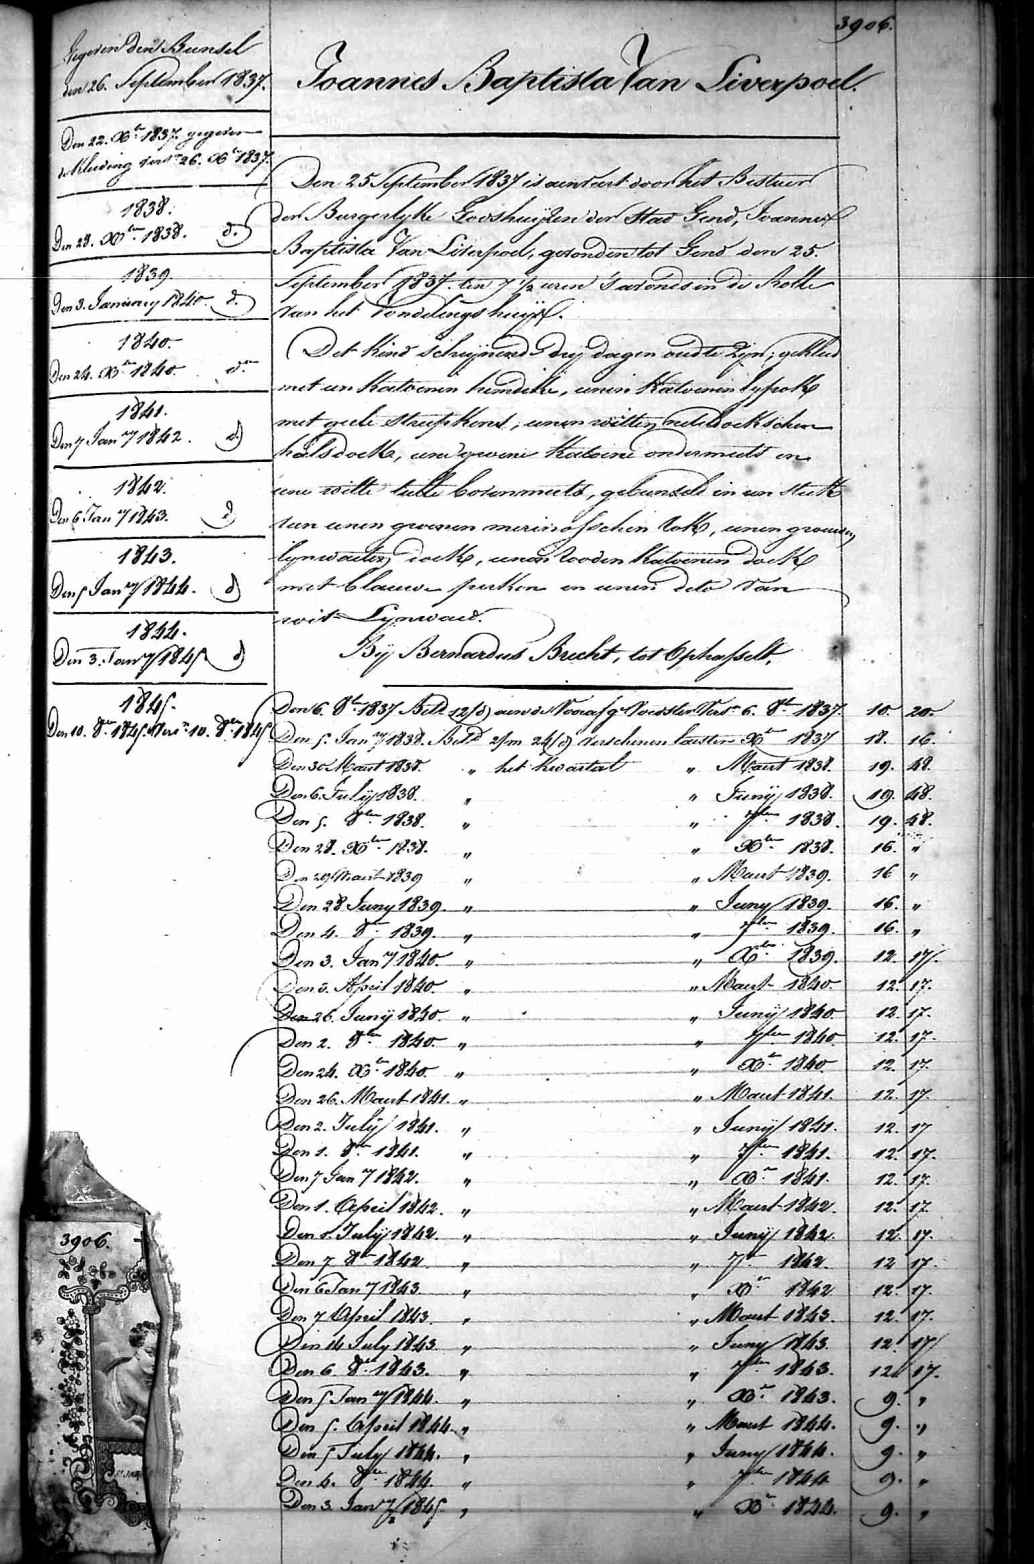 3906.
Gegeven den Bunsel
den 26. September 1837.
Den 22. Xber 1837. gegeven
kleeding 26. Xber 1837.
1838.
Den 28. Xber 1838. do
1839
Den 3. January 1840. do
1840.
Den 24. Xber 1840. do
1841.
Den 7 Jany 1842. do
1842.
Den 6 Jany 1843. do
1843.
Den 5 Jany 1844. do
1844.
Den 3. Jany 1845 do
1845.
Den 10. 8ber 1845. Vers 10. 8ber 1845
3906.
Joannes Baptista Van Liverpoel.
Den 25 September 1837 is aenveert door het Bestuer
der Burgerlyke Godshuyzen der Stad Gend, Joannes
Baptista Van Liverpoel, gevonden tot Gend den 25.
September 1837. ten 7 1/2 uren 's avonds in de Rolle
van het Vondelingshuys.
Het kind schynende dry dagen oud te zyn; gekleed
met een katoenen hemdeke, eenen katoenen lyfrok
met geele streepkens, eenen witten neteldoekschen
halsdoek, eene katoene ondermuts en
eene witte tulle bovenmuts, gebunseld in een stuk
van eenen groenen merinosschen rok, eenen grauwen
lynwaeten doek, eenen rooden katoenen doek
met blauwe perken en eenen dito van
wit Lynwaed.
By Bernardus Brecht, tot Ophasselt.
Den 6. 8ber 1837 Betd 12/d aen de Voedster Vers 6. 8ber 1837. 10. 20.
Den 5. Jany 1838. Betd 2/m 24/d verschenen Xber 1837 18. 16.
Den 30 Maert 1838. " het kwartael " Maert 1838. 19. 48.
Den 6. July 1838. " " Juny 1838. 19. 48.
Den 5. 8ber 1838. " " 7ber 1838. 19. 48.
Den 28. Xber 1838. " " Xber 1838. 16. "
Den 29 Maert 1839 " " Maert 1839. 16 "
Den 28 Juny 1839. " " Juny 1839. 16. "
Den 4. 8ber 1839. " " 7ber 1839. 16. "
Den 3. Jany 1840. " " Xber 1839. 12. 17.
Den 3. April 1840. " " Maert 1840. 12. 17.
Den 26. Juny 1840. " " Juny 1840. 12. 17.
Den 2. 8ber 1840. " " 7ber 1840. 12. 17.
Den 24. Xber 1840. " " Xber 1840. 12. 17.
Den 26. Maert 1841. " " Maert 1841. 12. 17.
Den 2. July 1841. " " Juny 1841. 12. 17
Den 1. 8ber 1841. " " 7ber 1841. 12. 17.
Den 7 Jany 1842. " " Xber 1841. 12. 17.
Den 1. April 1842. " " Maert 1842. 12. 17.
Den July 1842. " " Juny 1842. 12. 17.
Den 7 8ber 1842 " " 7ber 1842. 12 17.
Den 6 Jany 1843. " " Xber 1842 12. 17.
Den 7 April 1843. " " Maert 1843. 12. 17.
Den 14 July 1843. " " Juny 1843. 12. 17
Den 6 8ber 1843. " " 7ber 1843. 12 17.
Den 5 Jany 1844. " " Xber 1843. 9. "
Den 5. April 1844. " " Maert 1844. 9. "
Den 5 July 1844. " " Juny 1844. 9. "
Den 4. 8ber 1844. " " 7ber 1844 9. "
Den 3 Jany 1845 " " Xber 1844. 9. "